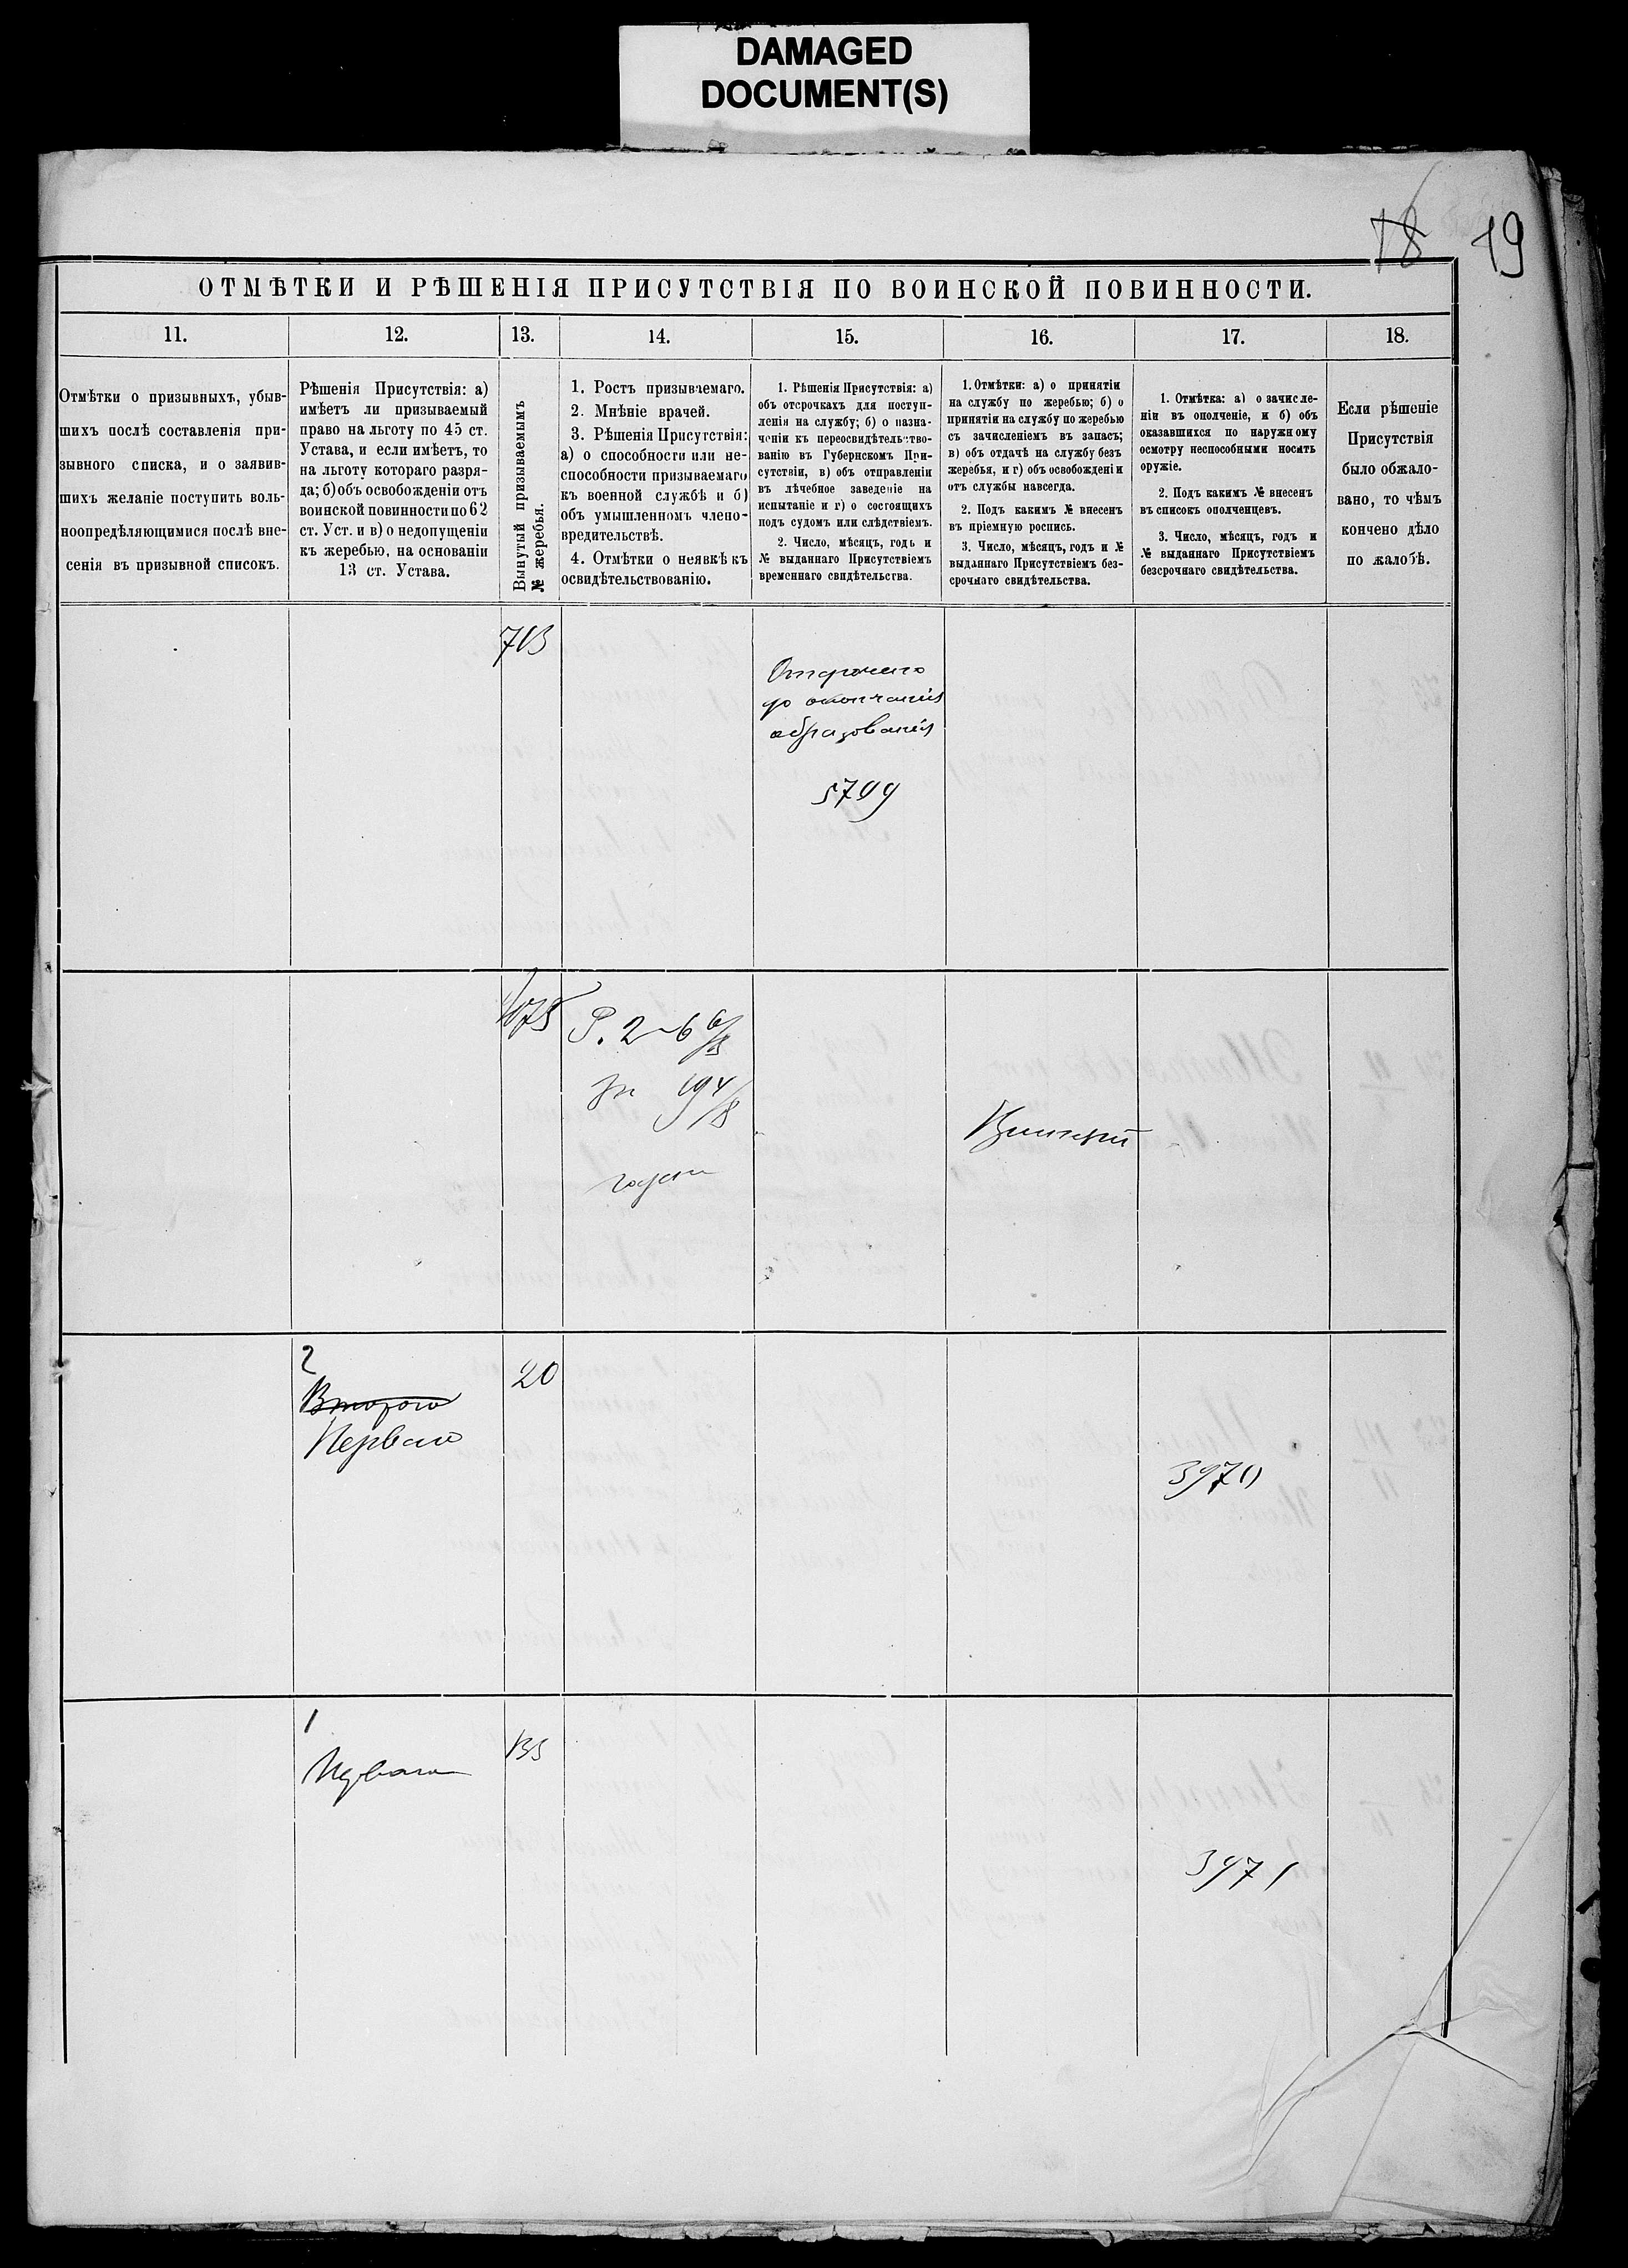 DAMAGED
DOCUMENT(S)
18 19
ОТМѢТКИ И РѢШЕНІЯ ПРИСУТСТВІЯ ПО ВОИНСКОЙ ПОВИННОСТИ.
11.
12.
13.
14.
15.
16.
17.
18.
Отмѣтки о призывныхъ, убыв-
шихъ послѣ составленія при-
зывного списка, и о заявив-
шихъ желаніе поступить воль-
ноопредѣляющимися послѣ вне-
сенія въ призывной списокъ.
Рѣшенія Присутствія: а)
имѣетъ ли призываемый
право на льготу по 45 ст.
Устава, и если имѣетъ, то
на льготу котораго разря-
да; б) объ освобожденіи отъ
воинской повинности по 62
ст. Уст. и в) о недопущеніи
къ жеребью, на основаніи
13 ст. Устава.
Вынутый призываемымъ
№ жеребья.
1. Ростъ призываемаго.
2. Мнѣніе врачей.
3. Рѣшенія Присутствія:
а) о способности или не-
способности призываемаго
къ военной службѣ и б)
объ умышленномъ члено-
вредительствѣ.
4. Отмѣтки о неявкѣ къ
освидѣтельствованію.
1. Рѣшенія Присутствія: а)
объ отсрочкахъ для поступ-
ленія на службу; б) о назна-
ченіи къ переосвидѣтельство-
ванію въ Губернскомъ При-
сутствіи, в) объ отправленіи
въ лѣчебное заведеніе на
испытаніе и г) о состоящихъ
подъ судомъ или слѣдствіемъ.
2. Число, мѣсяцъ, годъ и
№ выданнаго Присутствіемъ
временнаго свидѣтельства.
1. Отмѣтки: а) о принятіи
на службу по жеребью; б) о
принятіи на службу по жеребью
съ зачисленіемъ въ запасъ;
в) объ отдачѣ на службу безъ
жеребья, и г) объ освобожденіи
отъ службы навсегда.
2. Подъ какимъ № внесенъ
въ пріемную роспись.
3. Число, мѣсяцъ, годъ и №
выданнаго Присутствіемъ без-
срочнаго свидѣтельства.
1. Отмѣтка: а) о зачисле-
ніи въ ополченіе, и б) объ
оказавшихся по наружному
осмотру неспособными носить
оружіе.
2. Подъ какимъ № внесенъ
въ списокъ ополченцевъ.
3. Число, мѣсяцъ, годъ и
№ выданнаго Присутствіемъ
безсрочнаго свидѣтельства.
Если рѣшеніе
Присутствія
было обжало-
вано, то чѣмъ
кончено дѣло
по жалобѣ.
713
Отсрочено
до окончанія
образованія
5799
1075
Р. 2-6 6/8
годен
2
20
Второго
Перваго
3970
1
135
Перваго
3971